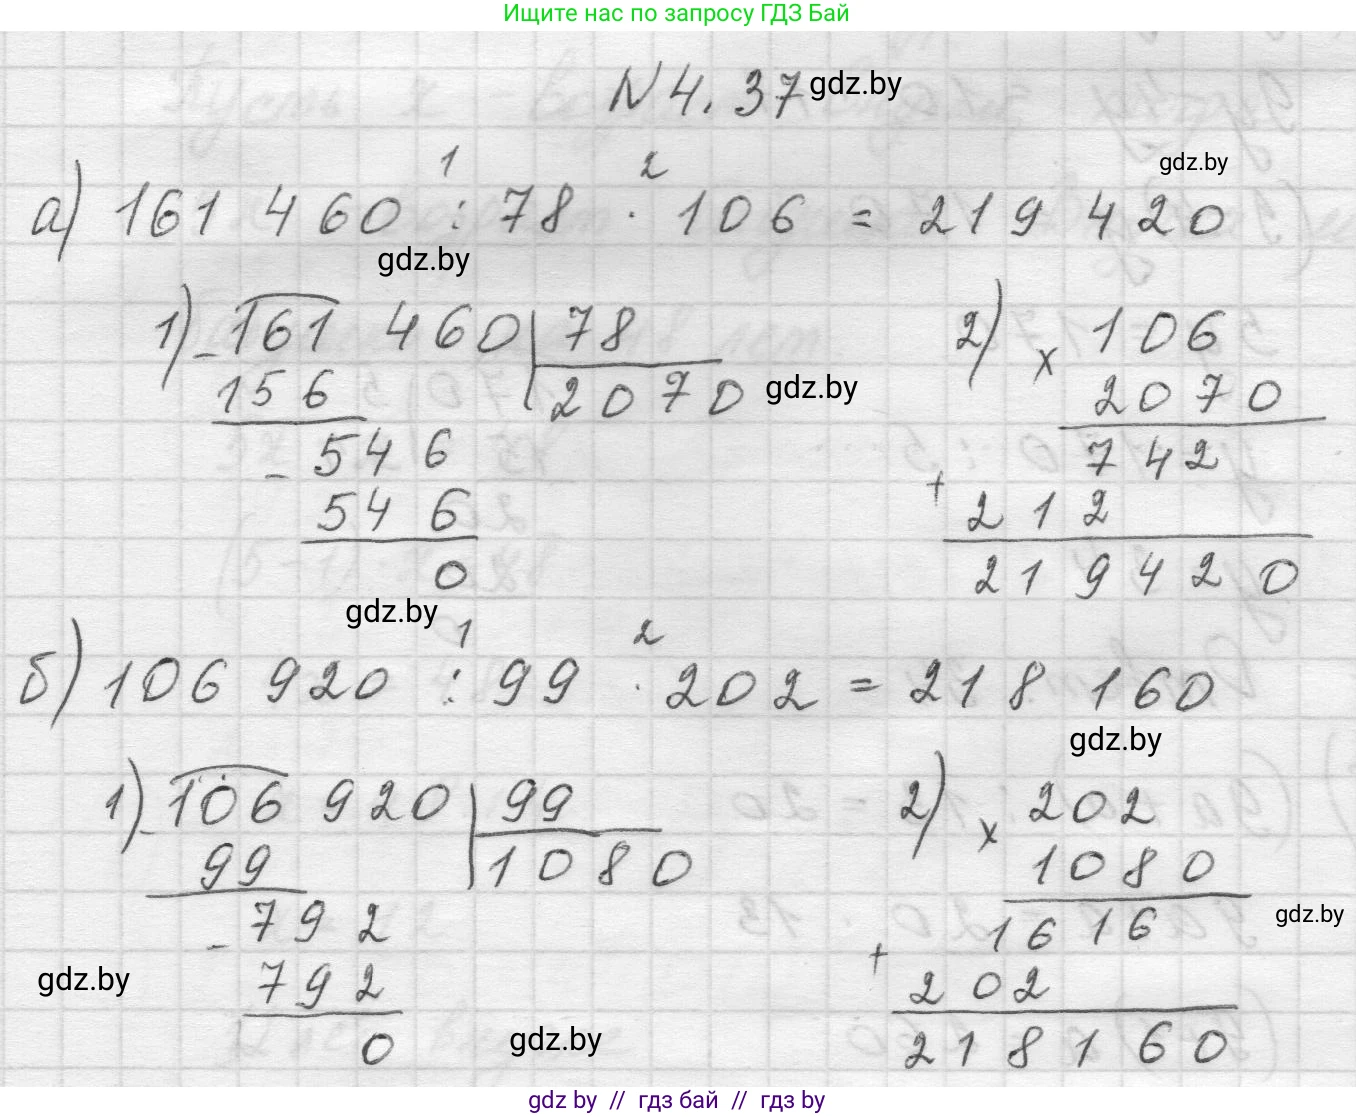 Ищите нас по запросу ГДЗ Бай
N 4.37 gdz.by
gdz.by
1 2
а) 161 460 : 78 · 106 = 219 420
gdz.by
1) - 161 460 | 78
156 2070
gdz.by
- 546
546
0
2) x 106
2070
742
+ 212
219420
gdz.by
1 2
б) 106 920 : 99 · 202 = 218 160
gdz.by
1) - 106 920 | 99
99 1080
- 792
792
0
2) x 202
1080
1616
gdz.by
+ 202
218160
gdz.by
gdz.by
gdz by // гдз бай // гдз by